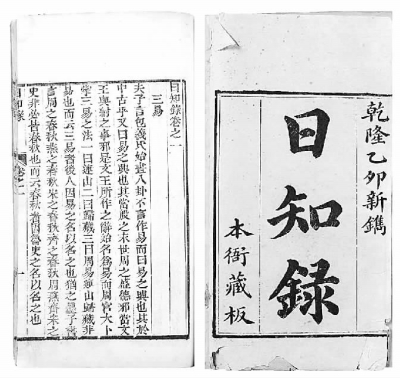 乾隆乙卯新鐫
日知錄
本衙藏板
日知錄卷之一
三易
夫子言包羲氏始畫八卦不言作易而曰易之興也其於
中古乎又曰易之興也其當殷之末世周之盛德邪當文
王與紂之事邪是文王所作之辭始名爲易而周官大卜
掌三易之法一曰連山二曰歸藏三曰周易連山歸藏非
易也而云三易者後人因易之名以名之也猶之墨子書
言周之春秋燕之春秋宋之春秋齊之春秋周燕齊宋之
史非必皆春秋也而云春秋者因魯史之名以名之也
日知錄 卷之一 一